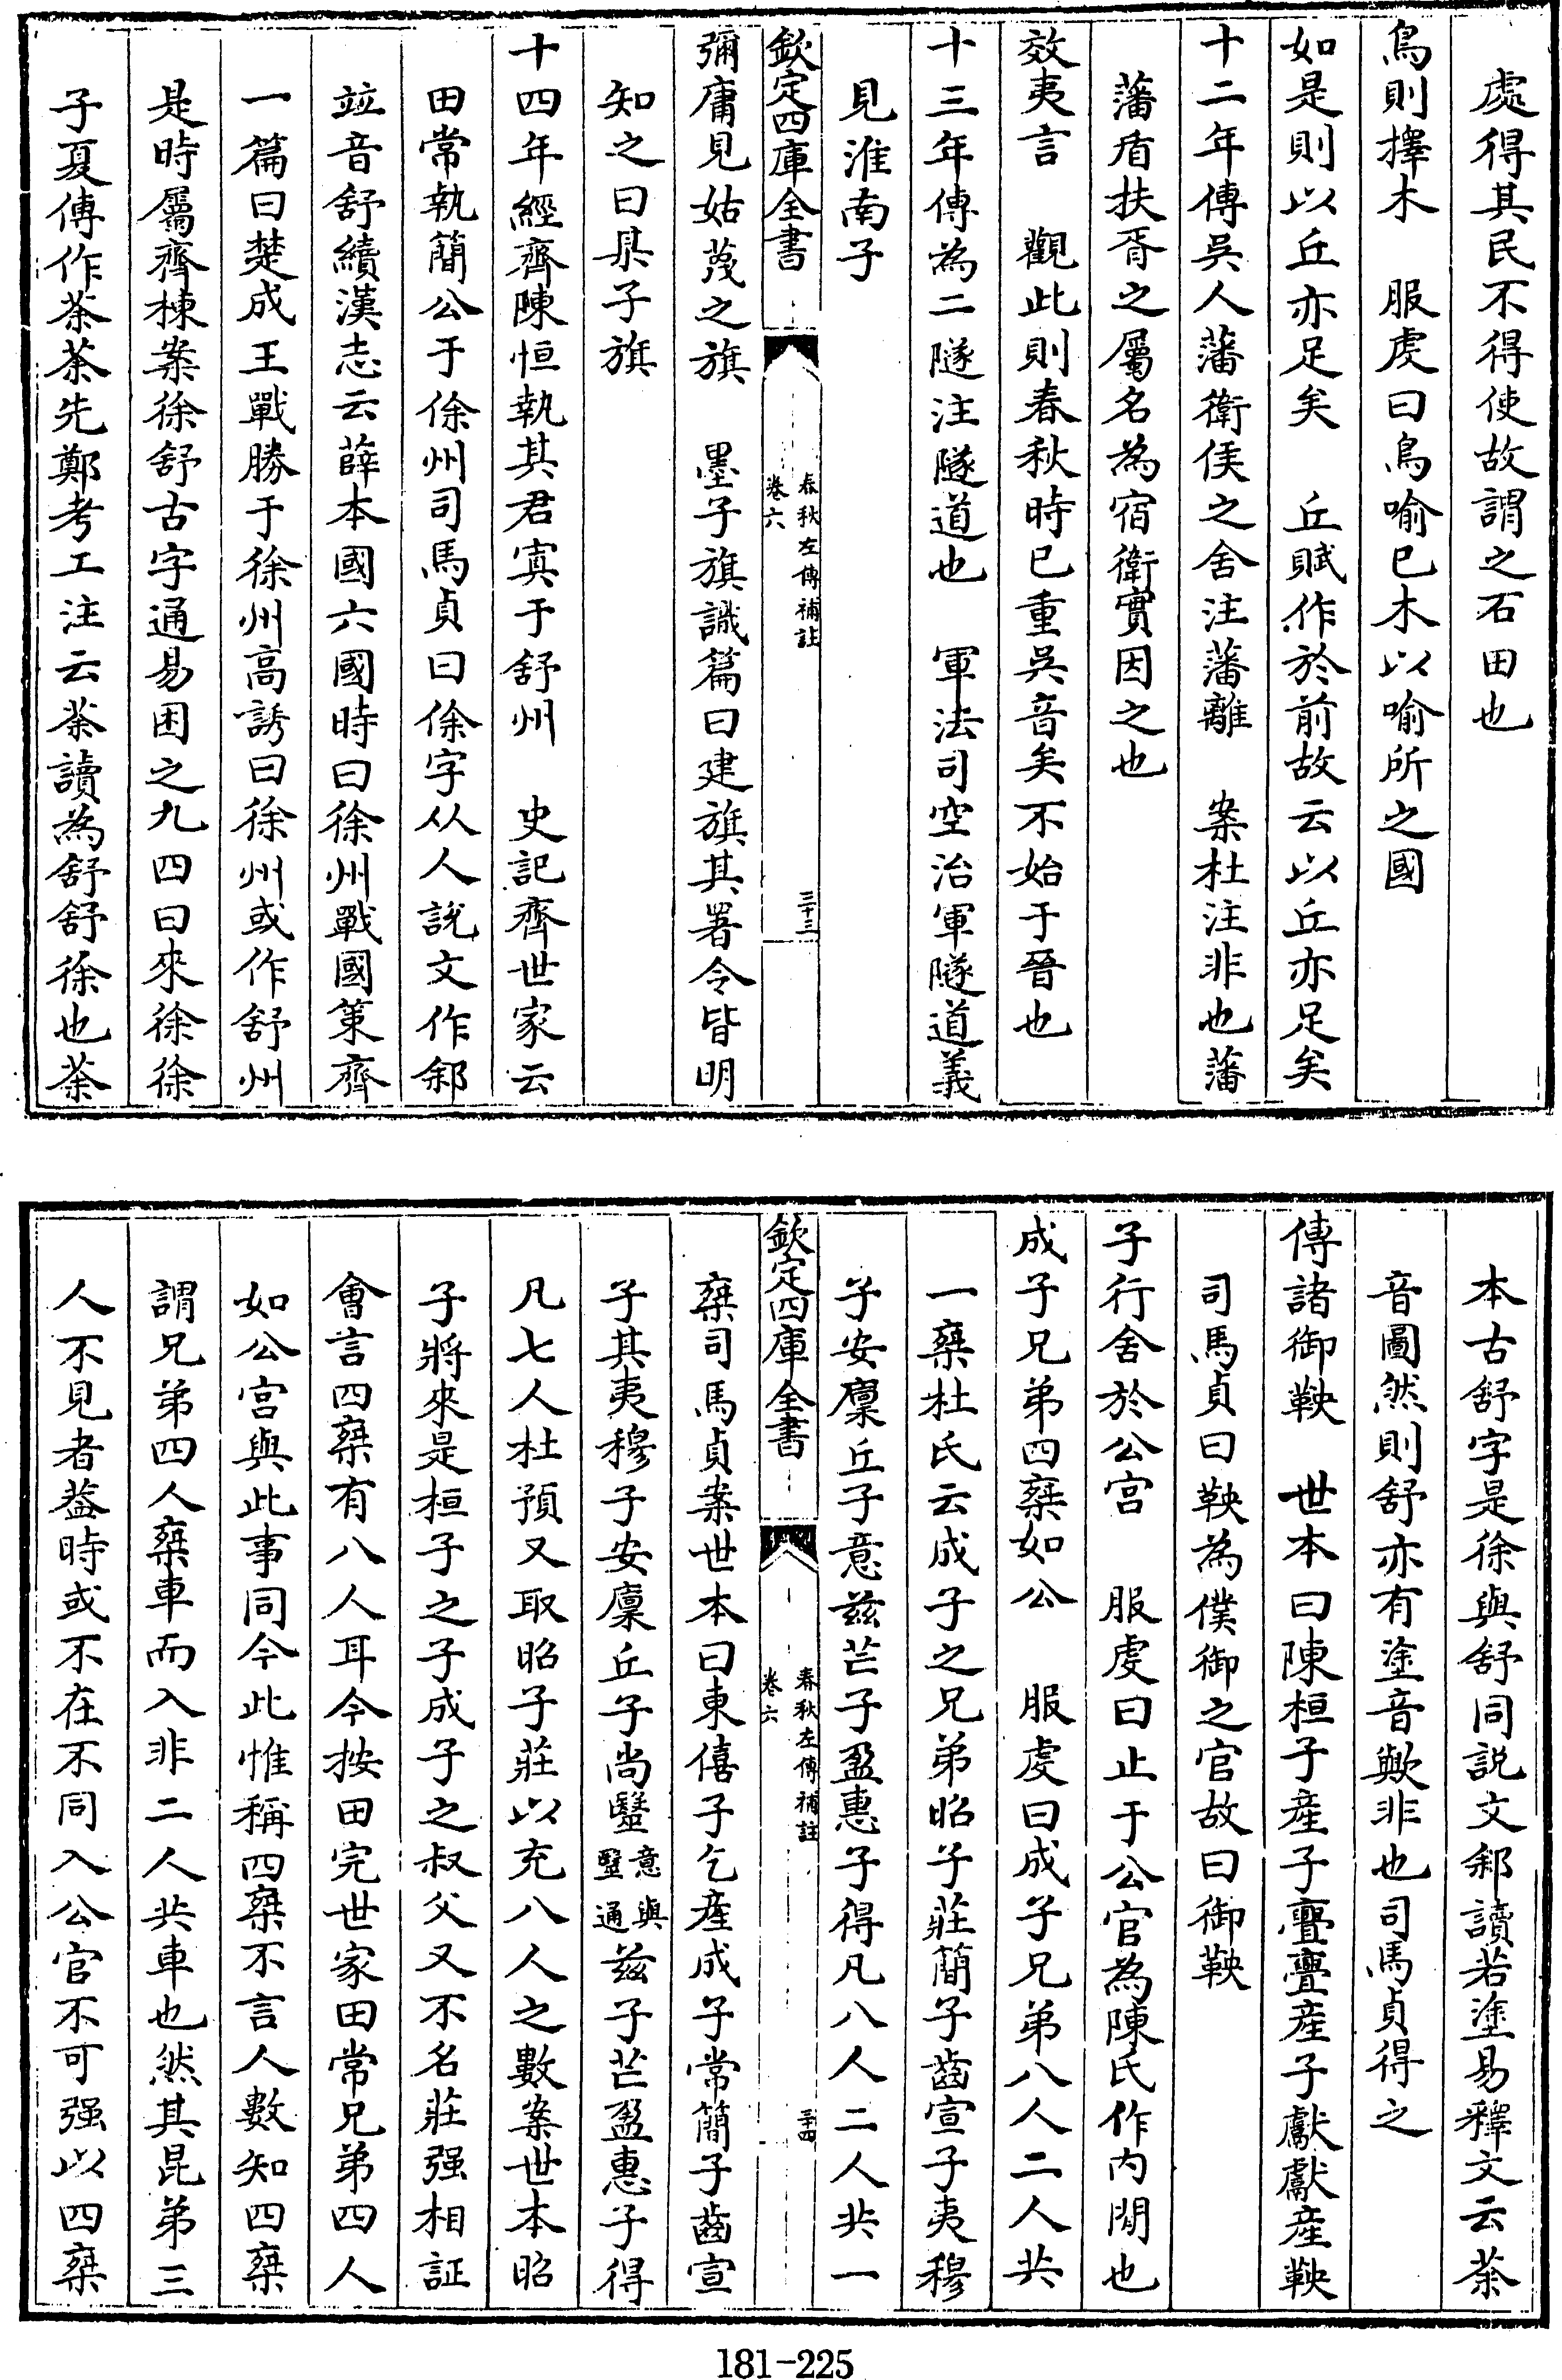 處得其民不得使故謂之石田也
鳥則擇木　服虔曰鳥喻已木以喻所之國
如是則以丘亦足矣　丘賦作於前故云以丘亦足矣
十二年傳吳人藩衛侯之舍注藩離　案杜注非也藩
藩盾扶胥之屬名為宿衛實因之也
效夷言　觀此則春秋時已重吳音矣不始于晉也
十三年傳為二隧注隧道也　軍法司空治軍隧道義
見淮南子
欽定四庫全書
春秋左傳補註
卷六
三十三
彌庸見姑蔑之旗　墨子旗識篇曰建旗其署令皆明
知之曰某子旗
十四年經齊陳恒執其君寘于舒州　史記齊世家云
田常執簡公于徐州司馬貞曰徐字从人說文作䣄
竝音舒續漢志云薛本國六國時曰徐州戰國策齊
一篇曰楚成王戰勝于徐州高誘曰徐州或作舒州
是時屬齊棟案徐舒古字通易困之九四曰來徐徐
子夏傳作荼荼先鄭考工注云荼讀為舒舒徐也荼
本古舒字是徐與舒同說文䣄讀若塗易釋文云荼
音圖然則舒亦有塗音歟非也司馬貞得之
傳諸御鞅　世本曰陳桓子産子亹亹産子獻獻産鞅
司馬貞曰鞅為僕御之官故曰御鞅
子行舍於公宮　服虔曰止于公宫為陳氏作内閒也
成子兄弟四乘如公　服虔曰成子兄弟八人二人共
一乘杜氏云成子之兄弟昭子莊簡子齒宣子夷穆
子安廩丘子意茲芒子盈惠子得凡八人二人共一
欽定四庫全書
春秋左傳補註
卷六
三十四
乘司馬貞案世本曰東僖子乞産成子常簡子齒宣
子其夷穆子安廩丘子尚毉意與毉通茲子芒盈惠子得
凡七人杜預又取昭子莊以充八人之數案世本昭
子將來是桓子之子成子之叔父又不名莊强相証
會言四乘有八人耳今按田完世家田常兄弟四人
如公宫與此事同今此惟稱四乘不言人數知四乘
謂兄弟四人乘車而入非二人共車也然其昆弟三
人不見者葢時或不在不同入公官不可强以四乘
181-225